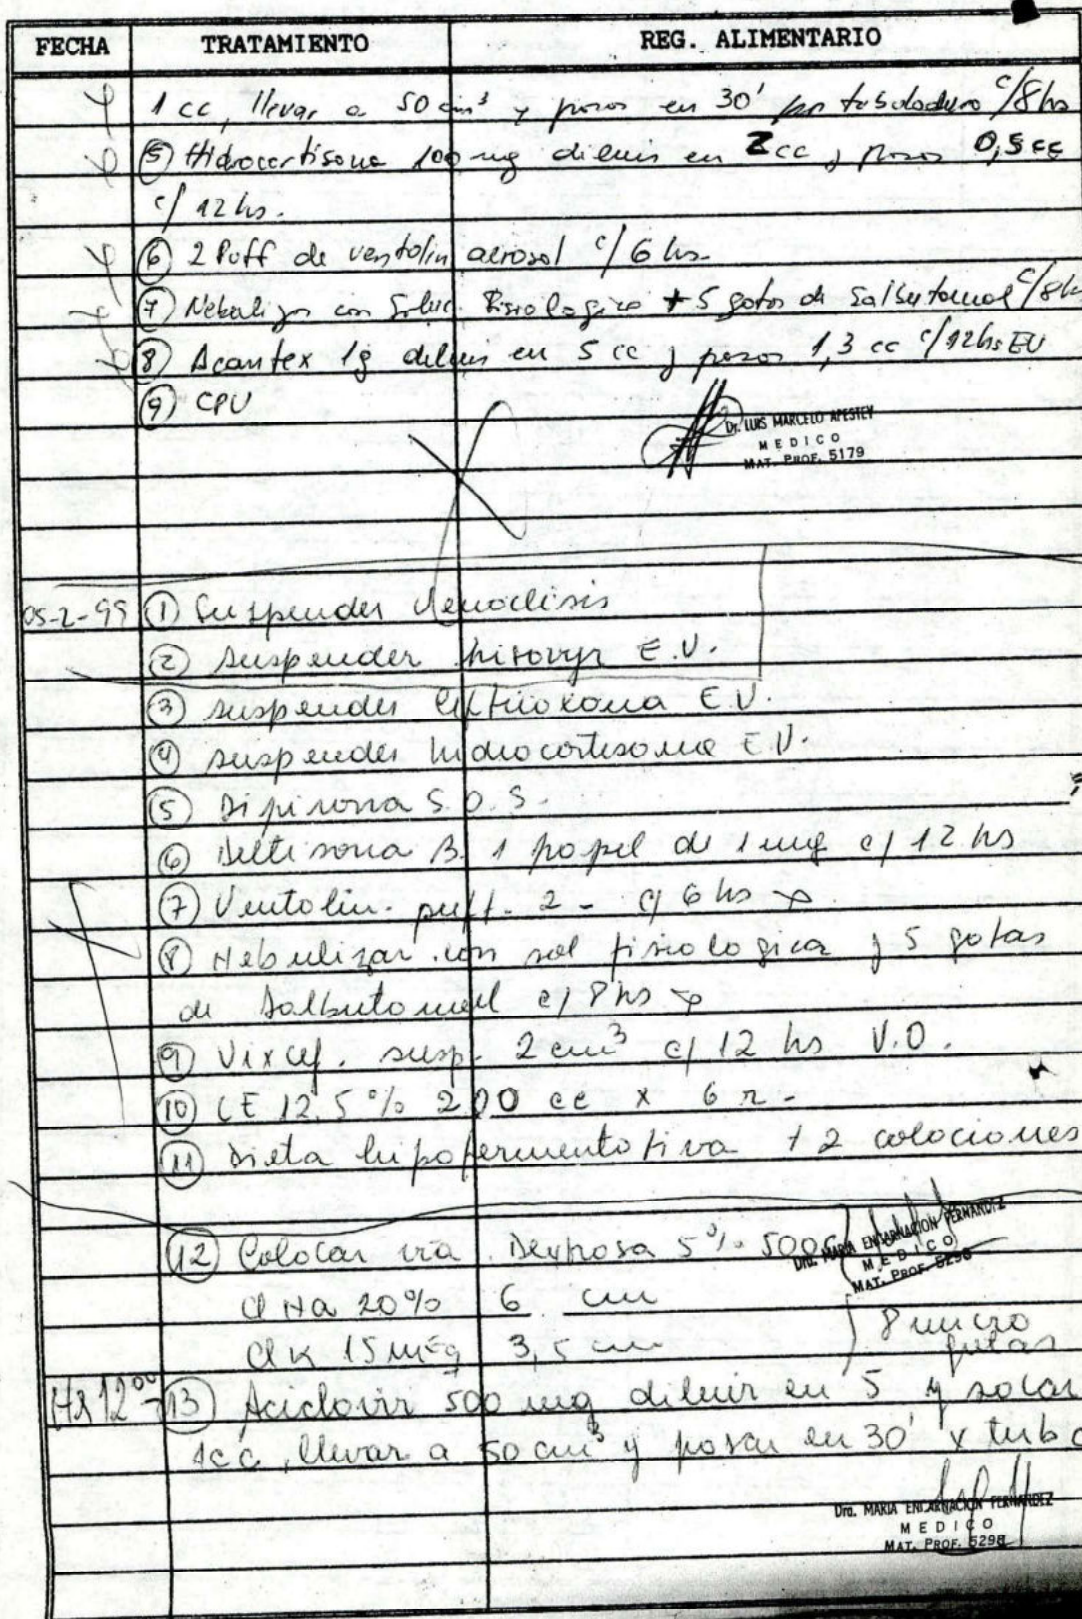 FECHA TRATAMIENTO REG. ALIMENTARIO
1 cc, llevar a 50 cm³ y pasar en 30' por tubuladura c/8 hs
⑤ Hidrocortisona 100 mg diluir en 2 cc y pasar 0,5 cc
c/ 12 hs.
⑥ 2 Puff de ventolin aerosol c/6 hs.
⑦ Nebulizar con Soluc. Fisiologica + 5 gotas de Salbutamol c/8h
⑧ Acantex 1g diluir en 5 cc y pasar 1,3 cc c/12hs EV
⑨ CPU
Dr. LUIS MARCELO APESTEY
MEDICO
MAT. PROF. 5179
05-2-99 ① Suspender Venoclisis
② suspender E.V.
③ suspender ceftriaxona E.V.
④ suspender hidrocortisona E.V.
⑤ Dipirona S.O.S.
⑥ Deltisona B. 1 papel de 1 mg c/ 12 hs
⑦ Ventolin puff. 2 - c/ 6 hs
⑧ Nebulizar con sol fisiologica y 5 gotas
de Salbutamol c/ 8 hs
⑨ Vixcef. susp. 2 cm³ c/ 12 hs V.O.
⑩ LE 12.5 % 200 cc x 6 r.
⑪ Dieta hipofermentativa + 2 colaciones
Dra. MARIA ENCARNACION FERNANDEZ
MEDICO
MAT. PROF. 5298
⑫ Colocar via. Dextrosa 5% 500
Cl Na 20% 6 cm
Cl K 15 mEq 3,5 cm
8 micro
gotas
Hs 12⁰⁰ ⑬ Aciclovir 500 mg diluir en 5 y sacar
1cc, llevar a 50 cm³ y pasar en 30' x tub
Dra. MARIA ENCARNACION FERNANDEZ
MEDICO
MAT. PROF. 5298